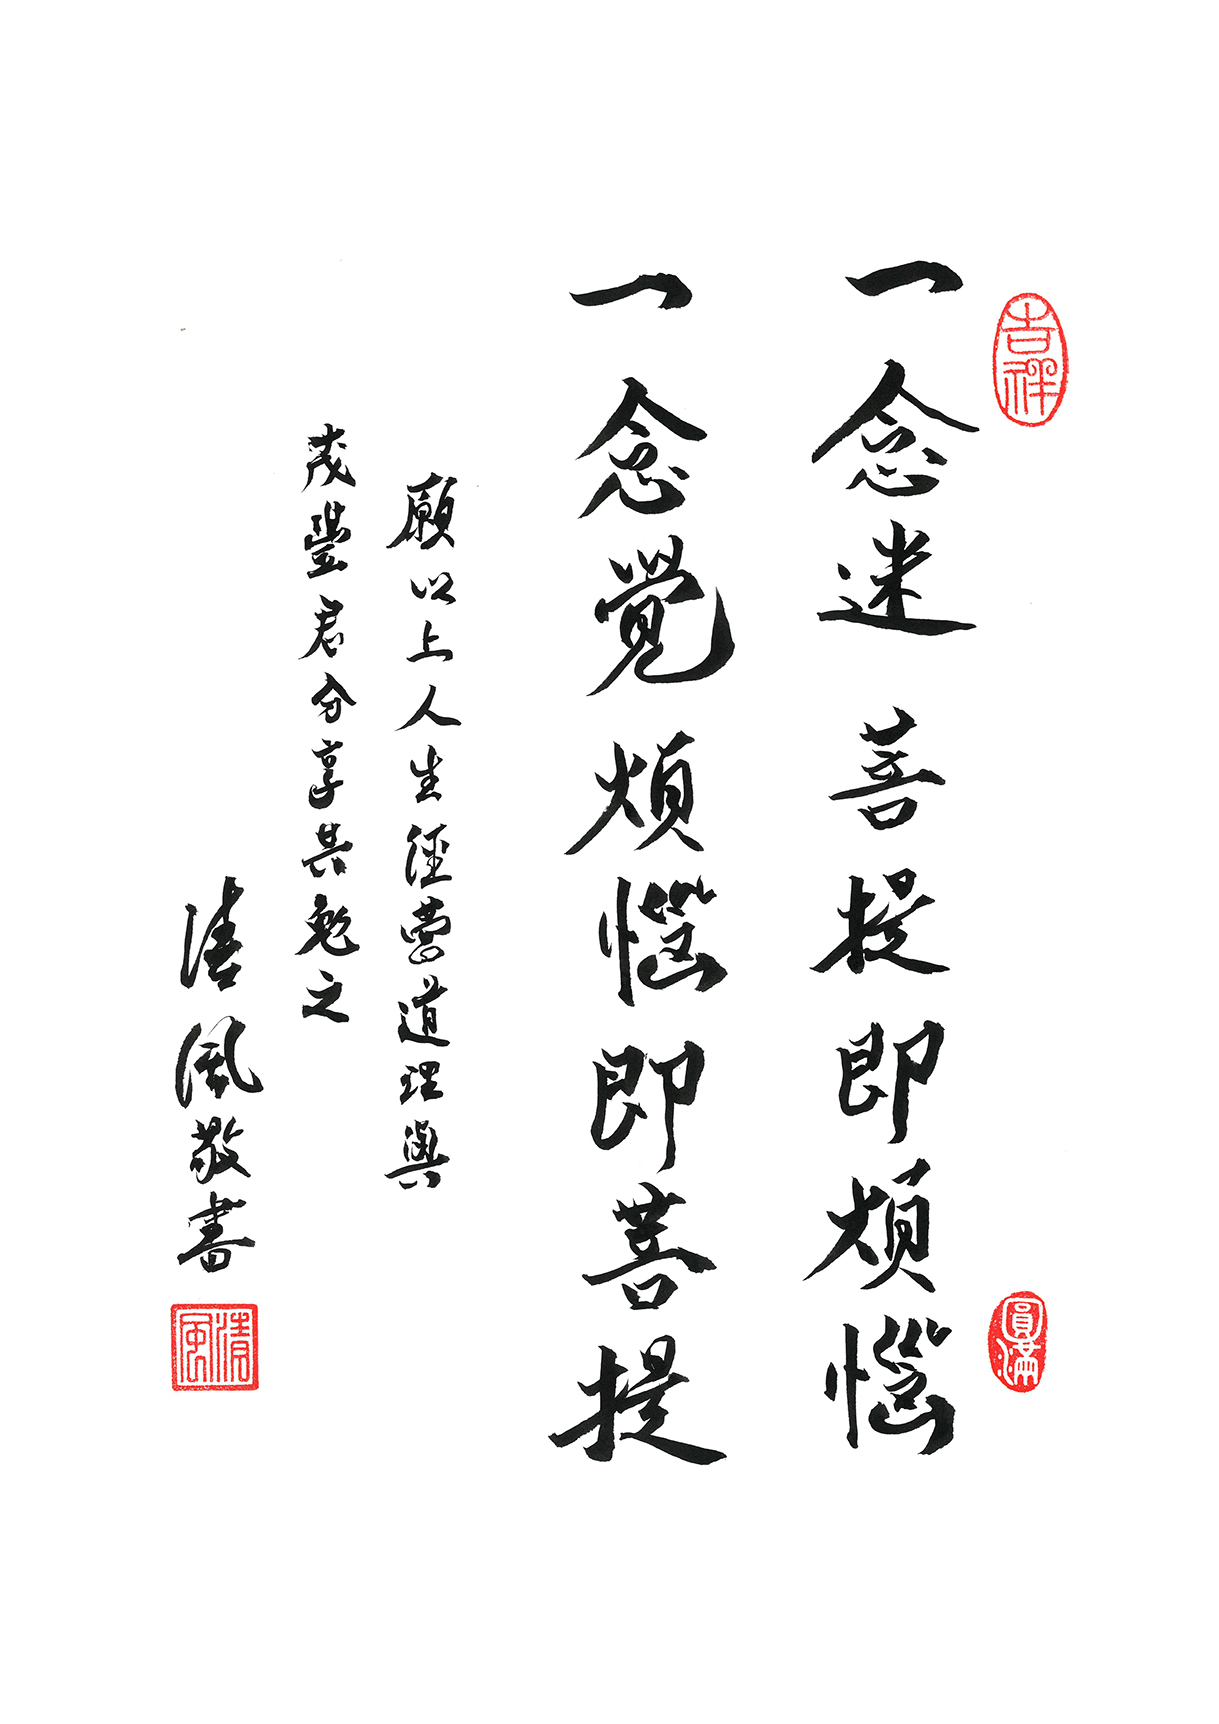 吉祥
一念迷菩提即煩惱
圓滿
一念覺煩惱即菩提
願以上人生經營道理與
茂豐君分享共勉之
清風敬書
清風